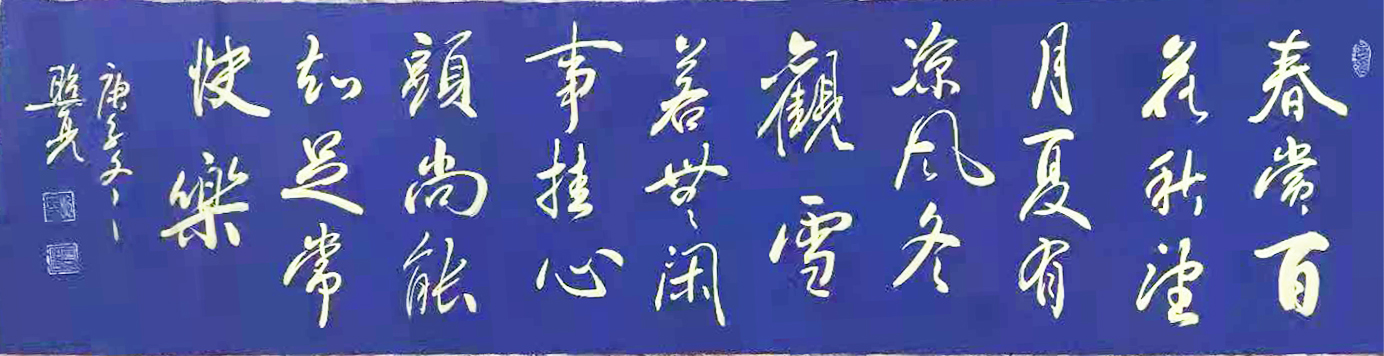 春赏百
花秋望
月夏有
凉风冬
觀雪
若無闲
事挂心
頭尚能
知足常
快樂
庚子冬